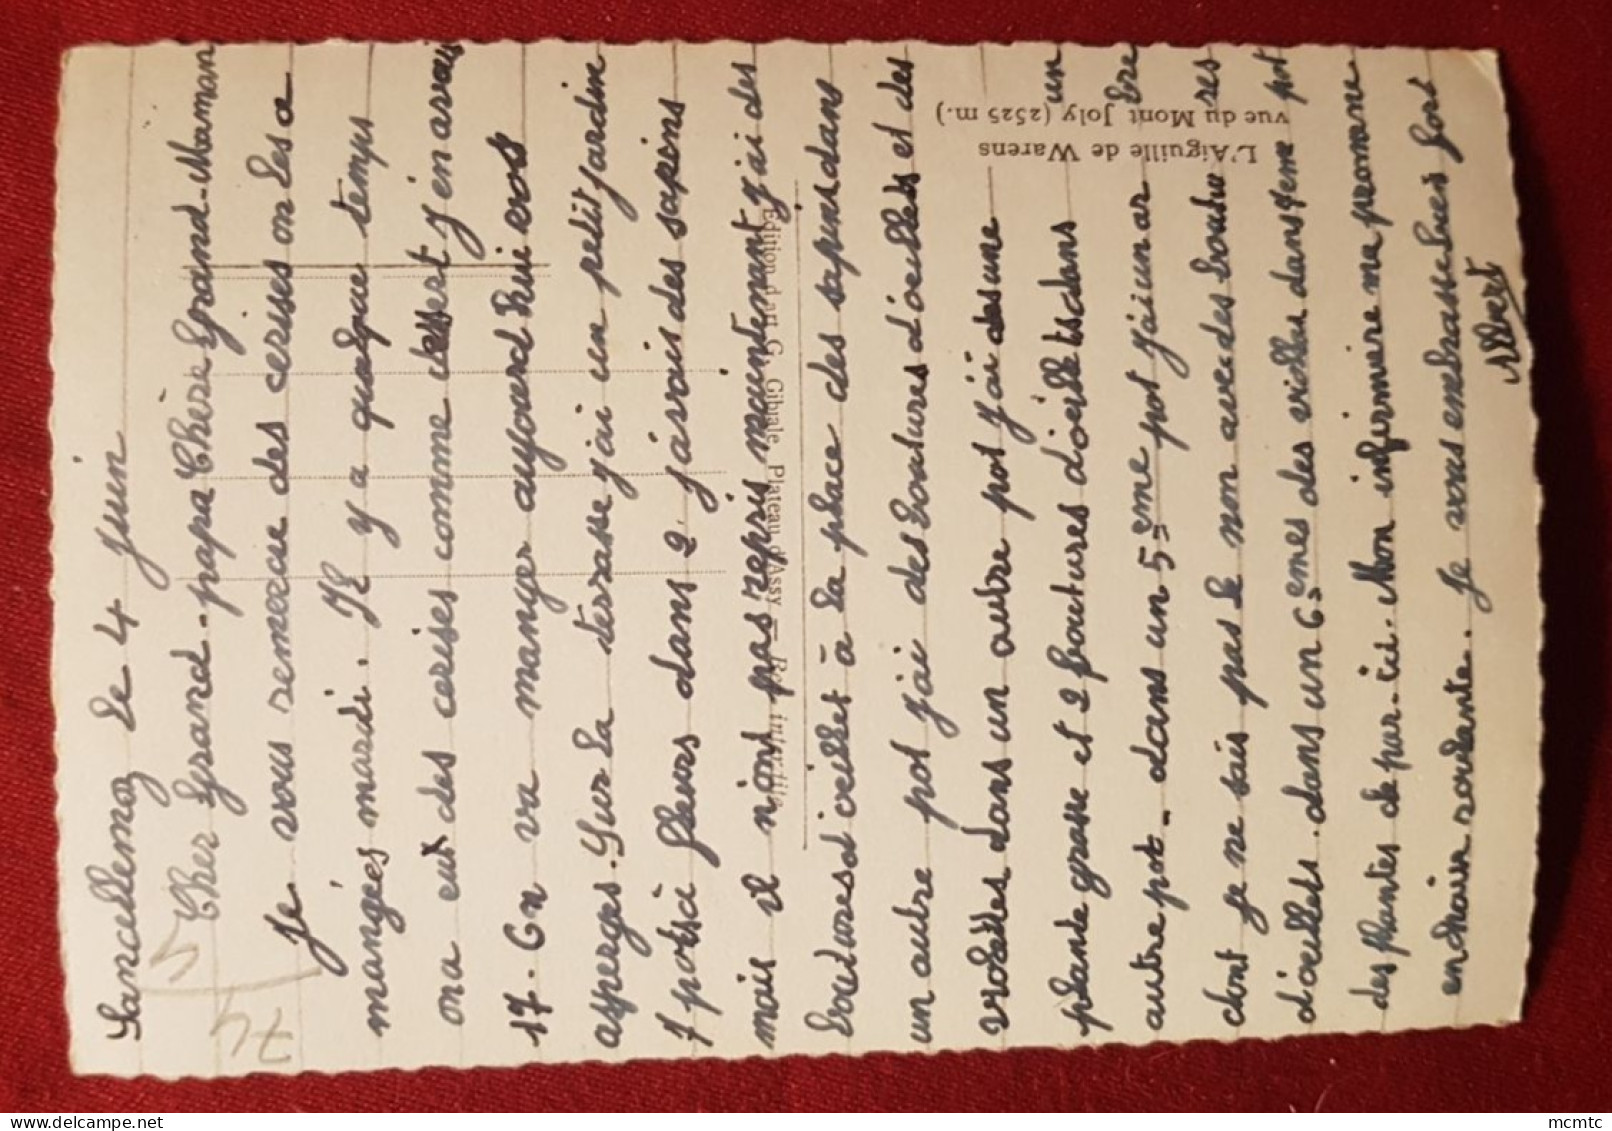 Sancellemoz le 4 juin
Cher Grand-papa Chère Grand-Maman
Je vous remercie des cerises on les a
mangées mardi. Il y a quelque temps
on a eut des cerises comme dessert j'en avais
17. On va manger aujourd'hui vos
asperges. Sur la terrasse j'ai un petit jardin
7 pots à fleurs dans 2 j'avais des sapins
mais il n'ont pas repris maintenant j'ai des
boutures d'oeillet à la place des sapins dans
un autre pot j'ai des boutures d'oeillets et des
violettes dans un autre pot j'ai des une
plante grasse et 2 boutures d'oeillets dans un
autre pot - dans un 5ème pot j'ai un ar bre
dont je ne sais pas le nom avec des boutu res
d'oeillets. dans un 6èmes des vieilles dans 7eme pot
des plantes de par-ici. Mon infirmière me promène
en chaise roulante. Je vous embrasse bien fort
Albert
L'Aiguille de Warens
vue du Mont Joly (2525 m.)
Edition d'art G. Gibuale Plateau d'Assy —
74